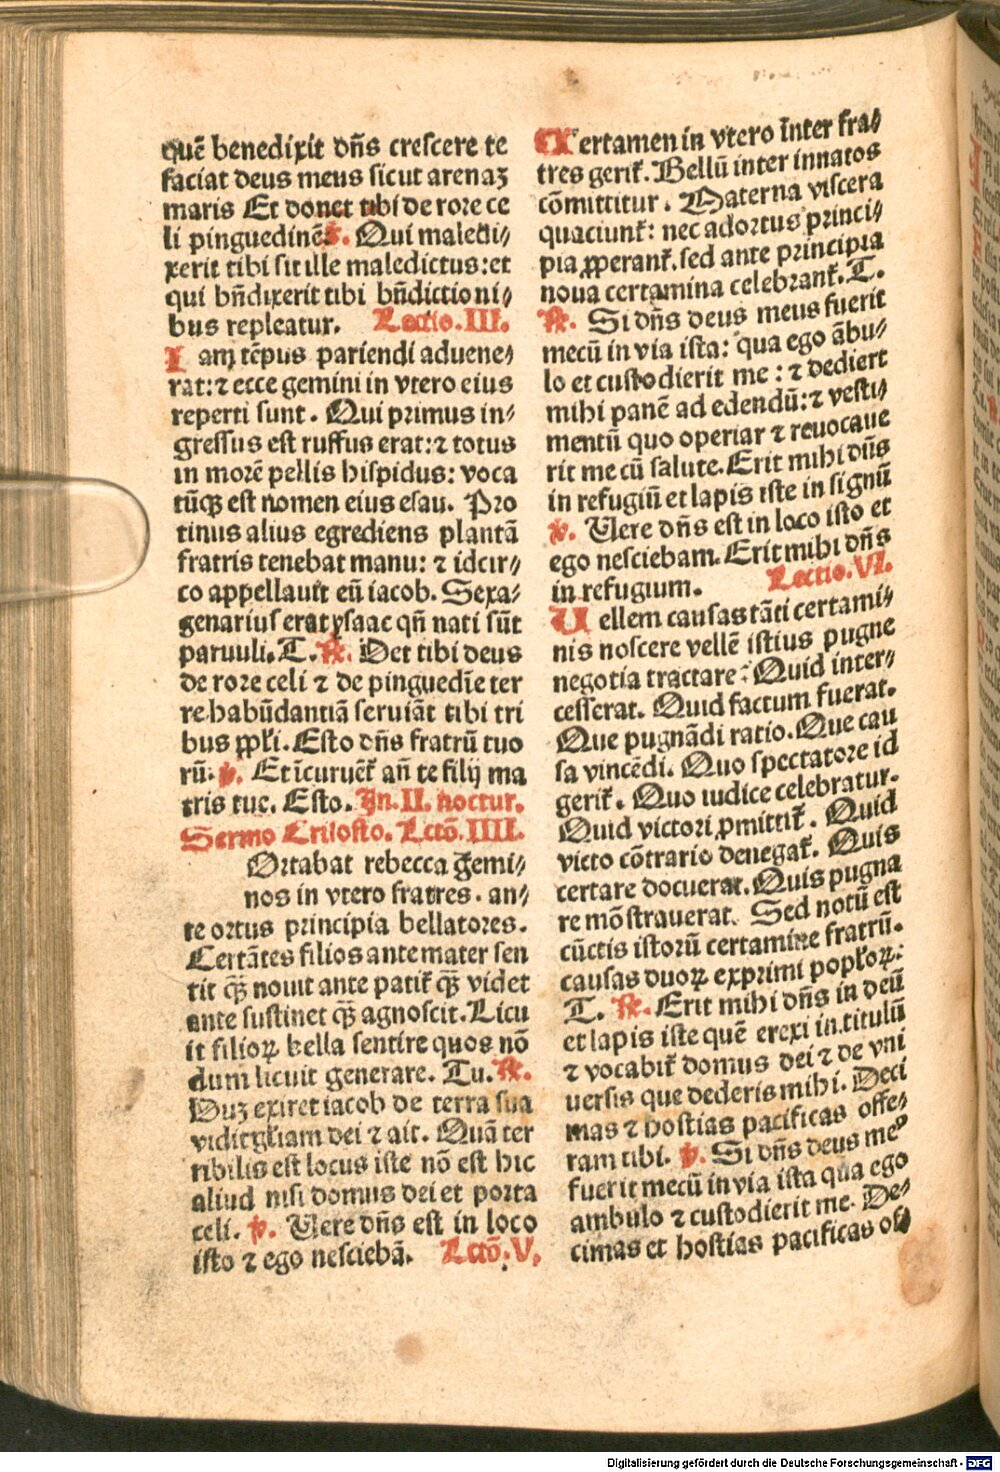 quē benedixit dn̄s creſcere te
faciat deus meus ſicut arenaꝫ
maris Et donet tibi de rore ce
li pinguedinē. ℣. Qui maledi⸗
xerit tibi ſit ille maledictus: et
qui bn̄dixerit tibi bn̄dictioni⸗
bus repleatur. Lectio. III.
Iam tēpus pariendi aduene⸗
rat: ⁊ ecce gemini in vtero eius
reperti ſunt. Qui primus in⸗
greſſus eſt ruffus erat: ⁊ totus
in morē pellis hiſpidus: voca
tūqꝫ eſt nomen eius eſau. Pro
tinus alius egrediens plantā
fratris tenebat manu: ⁊ idcir⸗
co appellauit eū iacob. Sexa⸗
genariuſ erat yſaac qn̄ nati ſūt
paruuli. T. ℟. Det tibi deus
de rore celi ⁊ de pinguedīe ter
re habūdantiā ſeruiāt tibi tri
bus ꝓpl̄i. Eſto dn̄s fratrū tuo
rū. ℣. Et īcuruēt̄ an̄ te filij ma
tris tue. Eſto. In. II. noctur.
Sermo Criſoſto. Lctō. IIII.
Ortabat rebecca gemi⸗
nos in vtero fratres. an⸗
te ortus principia bellatores.
Certātes filios ante mater ſen
tit qꝫ̄ nouit ante patit̄ qꝫ̄ videt
ante ſuſtinet qꝫ̄ agnoſcit. Licu
it filioꝝ bella ſentire quos nō
dum licuit generare. Tu. ℟.
Duꝫ exiret iacob de terra ſua
vidit gl̄iam dei ⁊ ait. Quā ter
ribilis eſt locus iſte nō eſt hic
aliud niſi domus dei et porta
celi. ℣. Uere dn̄s eſt in loco
iſto ⁊ ego neſciebā. Lctō. V.
Certamen in vtero inter fra⸗
tres gerit̄. Bellū inter innatos
cōmittitur. Materna viſcera
quaciunt̄: nec adortus princi⸗
pia ꝓperant̄. ſed ante principia
noua certamina celebrant̄. T.
℟. Si dn̄s deus meus fuerit
mecū in via iſta: qua ego ābu⸗
lo et cuſtodierit me: ⁊ dediert
mihi panē ad edendū: ⁊ veſti⸗
mentū quo operiar ⁊ reuocaue
rit me cū ſalute. Erit mihi dn̄s
in refugiū et lapis iſte in ſignū
℣. Uere dn̄s eſt in loco iſto et
ego neſciebam. Erit mihi dn̄s
in refugium. Lectio. VI.
Uellem cauſas tāti certami⸗
nis noſcere vellē iſtius pugne
negotia tractare: Quid inter⸗
ceſſerat. Quid factum fuerat.
Que pugnādi ratio. Que cau
ſa vincēdi. Quo ſpectatore id
gerit̄. Quo iudice celebratur.
Quid victori ꝓmittit̄. Quid
victo cōtrario denegat̄. Quis
certare docuerat. Quis pugna
re mōſtrauerat. Sed notū eſt
cūctis iſtorū certamine fratrū.
cauſas duoꝝ exprimi popl̄oꝝ:
T. ℟. Erit mihi dn̄s in deū
et lapis iſte quē erexi in titulū
⁊ vocabit̄ domus dei ⁊ de vni
uerſis que dederis mihi. Deci
mas ⁊ hoſtias pacificas offe⸗
ram tibi. ℣. Si dn̄s deus meꝰ
fuerit mecū in via iſta qua ego
ambulo ⁊ cuſtodierit me. De⸗
cimas et hoſtias pacificas of⸗
Digitalisierung gefördert durch die Deutsche Forschungsgemeinschaft - DFG